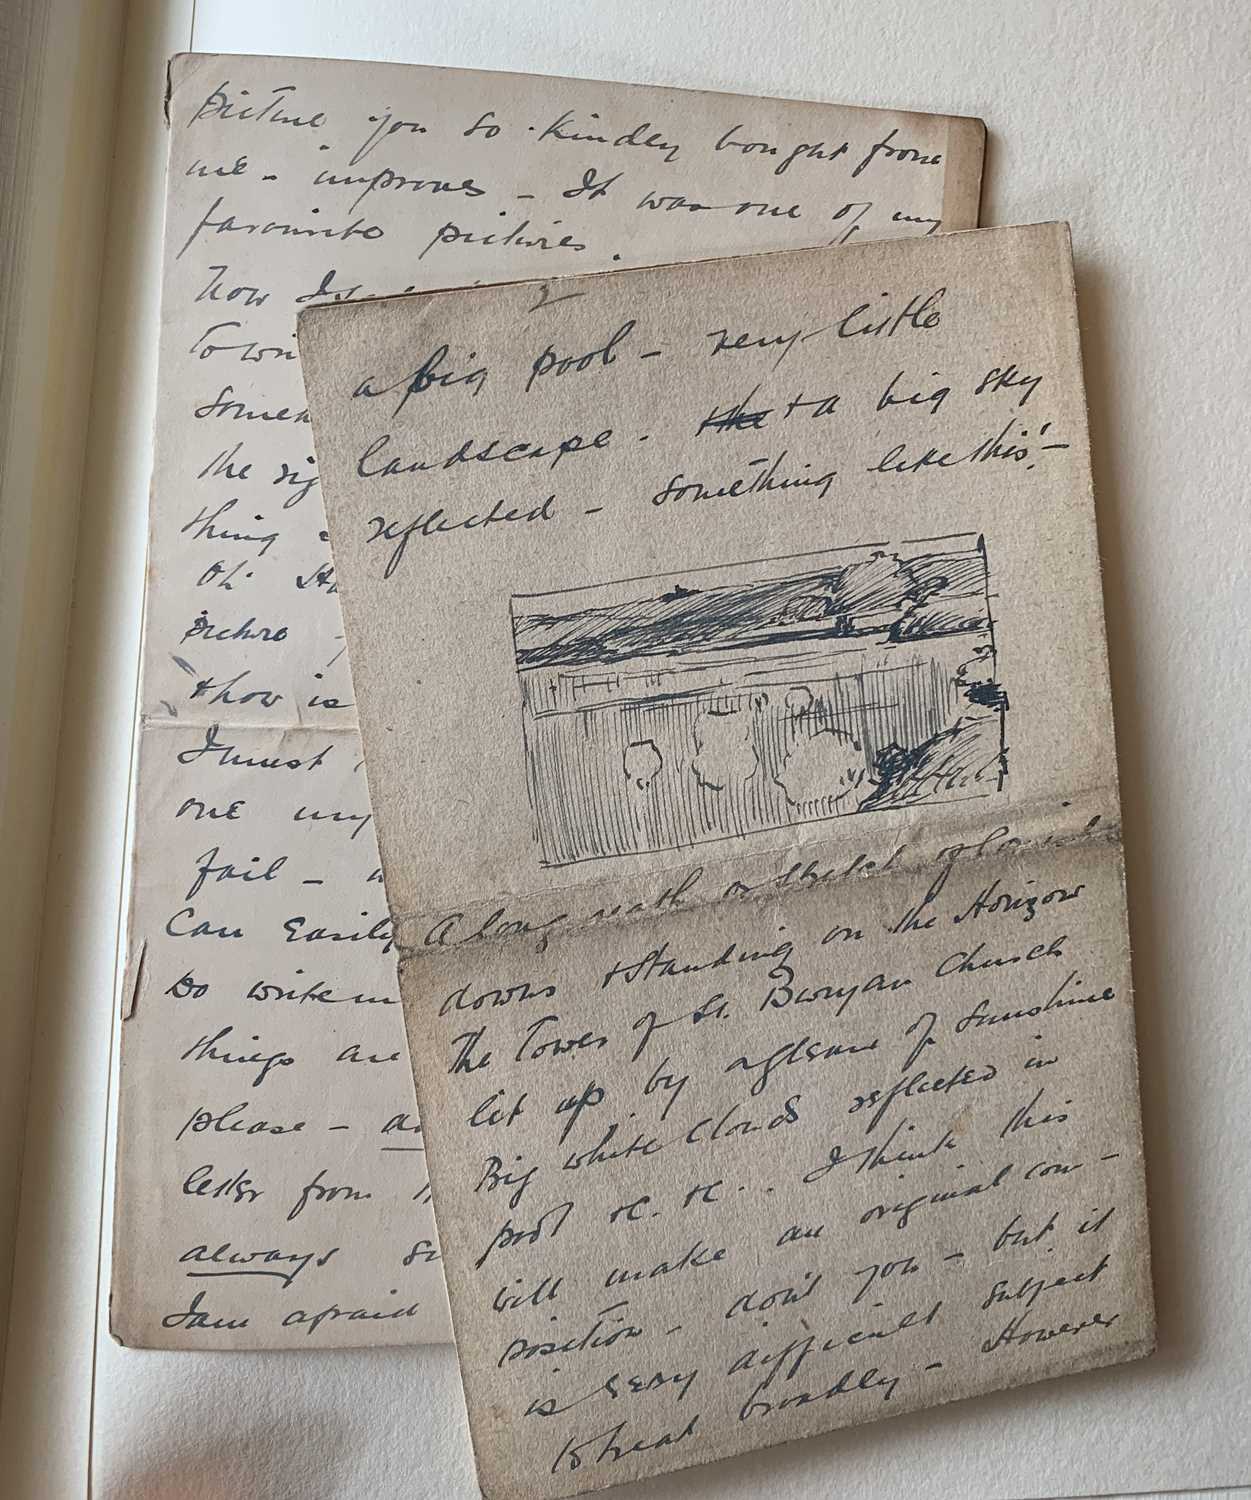 picture you so kindly bought from
me - improves - It was one of my
favourite pictures.
how
to wri
somet
the rig
thing
Oh.
picture -
& how is
I must
one my
fail -
Can Easily
Do write
things are
please -
letter from
always
I am afraid
2
a big pool - very little
landscape - the + A big sky
reflected - something like this! -
A long or stretch of
downs & standing on the Horizon
The Tower of St. Buryan Church
lit up by a gleam of sunshine
Big white clouds reflected in
pool &c. &c.. I think this
will make an original com-
position - don't you - but it
is very difficult subject
to treat broadly - However